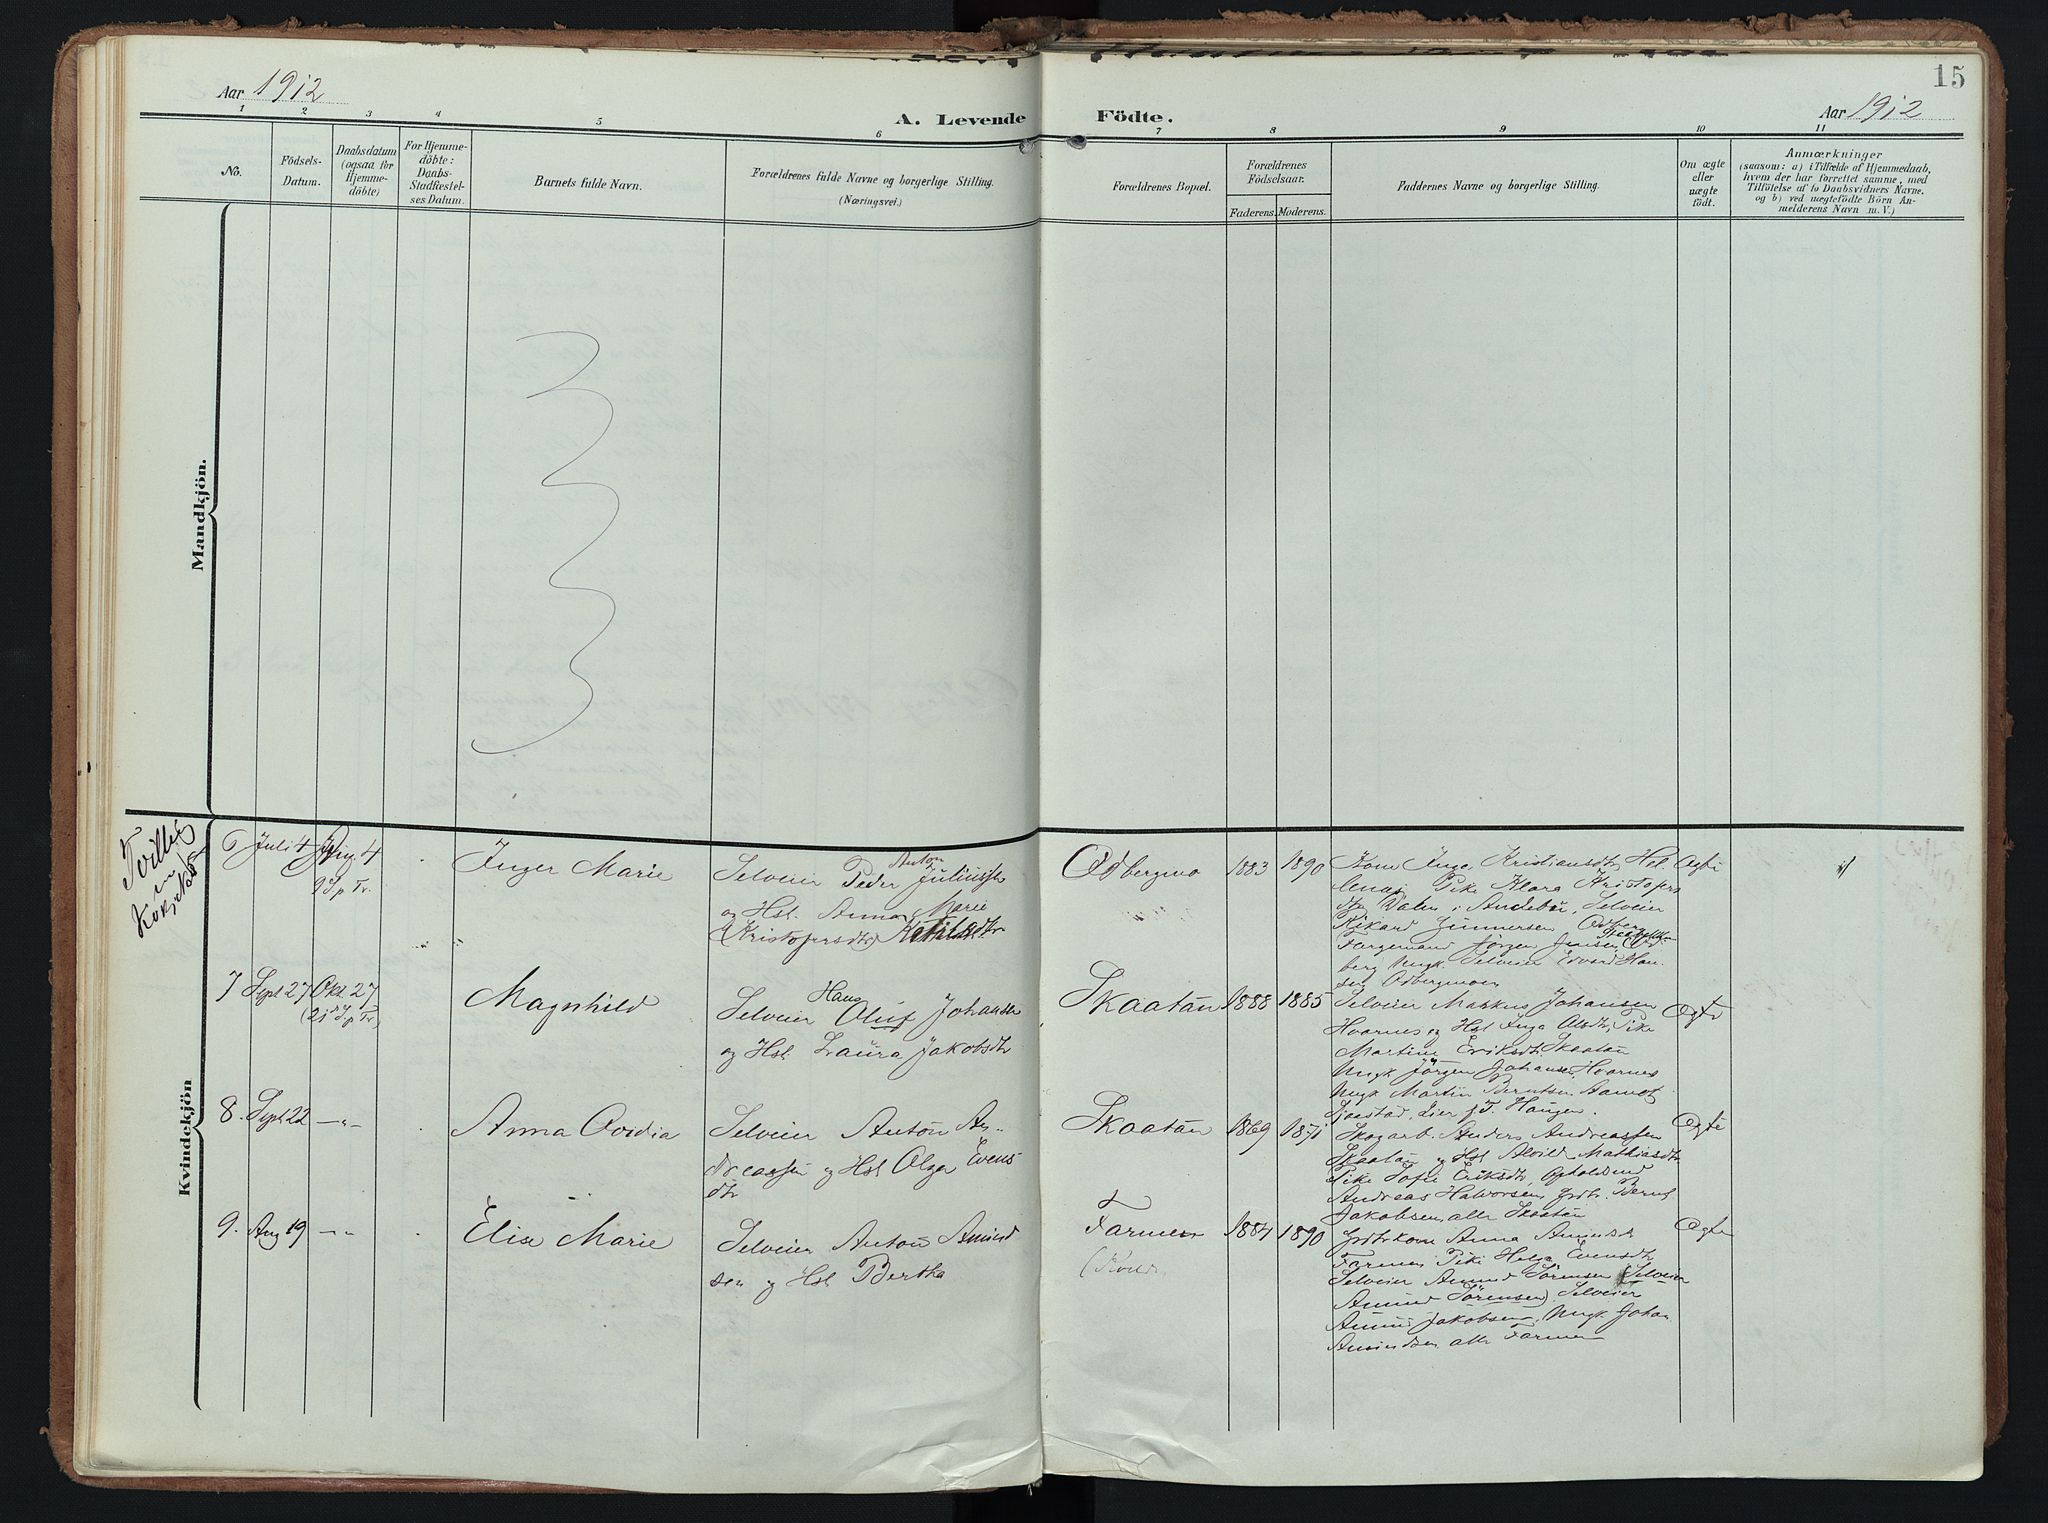 Aar 1912
15
Aar 1912
A. Levende Födte.
1 2 3 4 5 6 7 8 9 10 11
No.
Födsels-
Datum.
Daabsdatum
(ogsaa for
Hjemme-
döbte)
For Hjemme-
döbte:
Daabs-
Stadfæstel-
ses Datum.
Barnets fulde Navn.
Forældrenes fulde Navne og borgerlige Stilling.
(Næringsvei.)
Forældrenes Bopæl.
Forældrenes
Födselsaar.
Faderens. Moderens.
Faddernes Navne og borgerlige Stilling.
Om ægte
eller
uægte
födt.
Anmærkninger
(saasom: a) i Tilfælde af Hjemmedaab,
hvem der har forrettet samme, med
Tilföielse af to Daabsvidners Navne,
og b) ved uægtefödte Börn An-
melderens Navn m. V.)
Mandkjön.
Kvindekjön
6 Juli 4 Aug. 4
9 S. p. Tr.
Inger Marie
Selveier Peder Anton Juliussen
og Hst. Anna Marie
Kristofersdtr
Odbergmo
1883 1890
Kone Inga Kristiansdtr
Pike Klara Kristofers
dtr i Andebu, Selveier
Rikard Gunnersen Odberg
Fargemand Jörgen Jensen
berg Ungk. Selveier Edvard Han
sen Odbergmoen
Ægte
7 Sept 27 Okt. 27
(21 S. p. Tr.)
Magnhild
Selveier Hans Oluf Johansen
og Hst. Laura Jakobsdtr
Skaatan
1888 1885
Selveier Markus Johansen
Hvarnes og Hst Inga Olsdtr, Pike
Martine Eriksdtr. Skaatan
Ungk Jörgen Johansen, Hvarnes
Ungk Martin Berntsen Aamot
Sjaastad, Lier f. T. Haugen.
Ægte
8. Sept 22 —„—
Anna Ovidia
Selveier Anton An-
dreassen og Hst Olga Evens
dtr
Skaatan
1869 1871
Skogarb. Anders Andreassen
Skaatan og Hst Alvild Mathiasdtr
Pike Sofie Eriksdtr, Opholdsmd
Andreas Halvorsen, Grdbr. Bernt
Jakobsen, alle Skaatan
Ægte
9. Aug 19 —„—
Elise Marie
Selveier Anton Amund
sen og Hst Bertha
Farmen
1884 1890
Grdbrkone Anna Amundsdtr
Farmen Pike Helga Evensdtr
Selveier Amund Sörensen (Selveier
Amund Sörensen) Selveier
Amund Jakobsen, Ungk Johan
Amundsen alle Farmen
Ægte